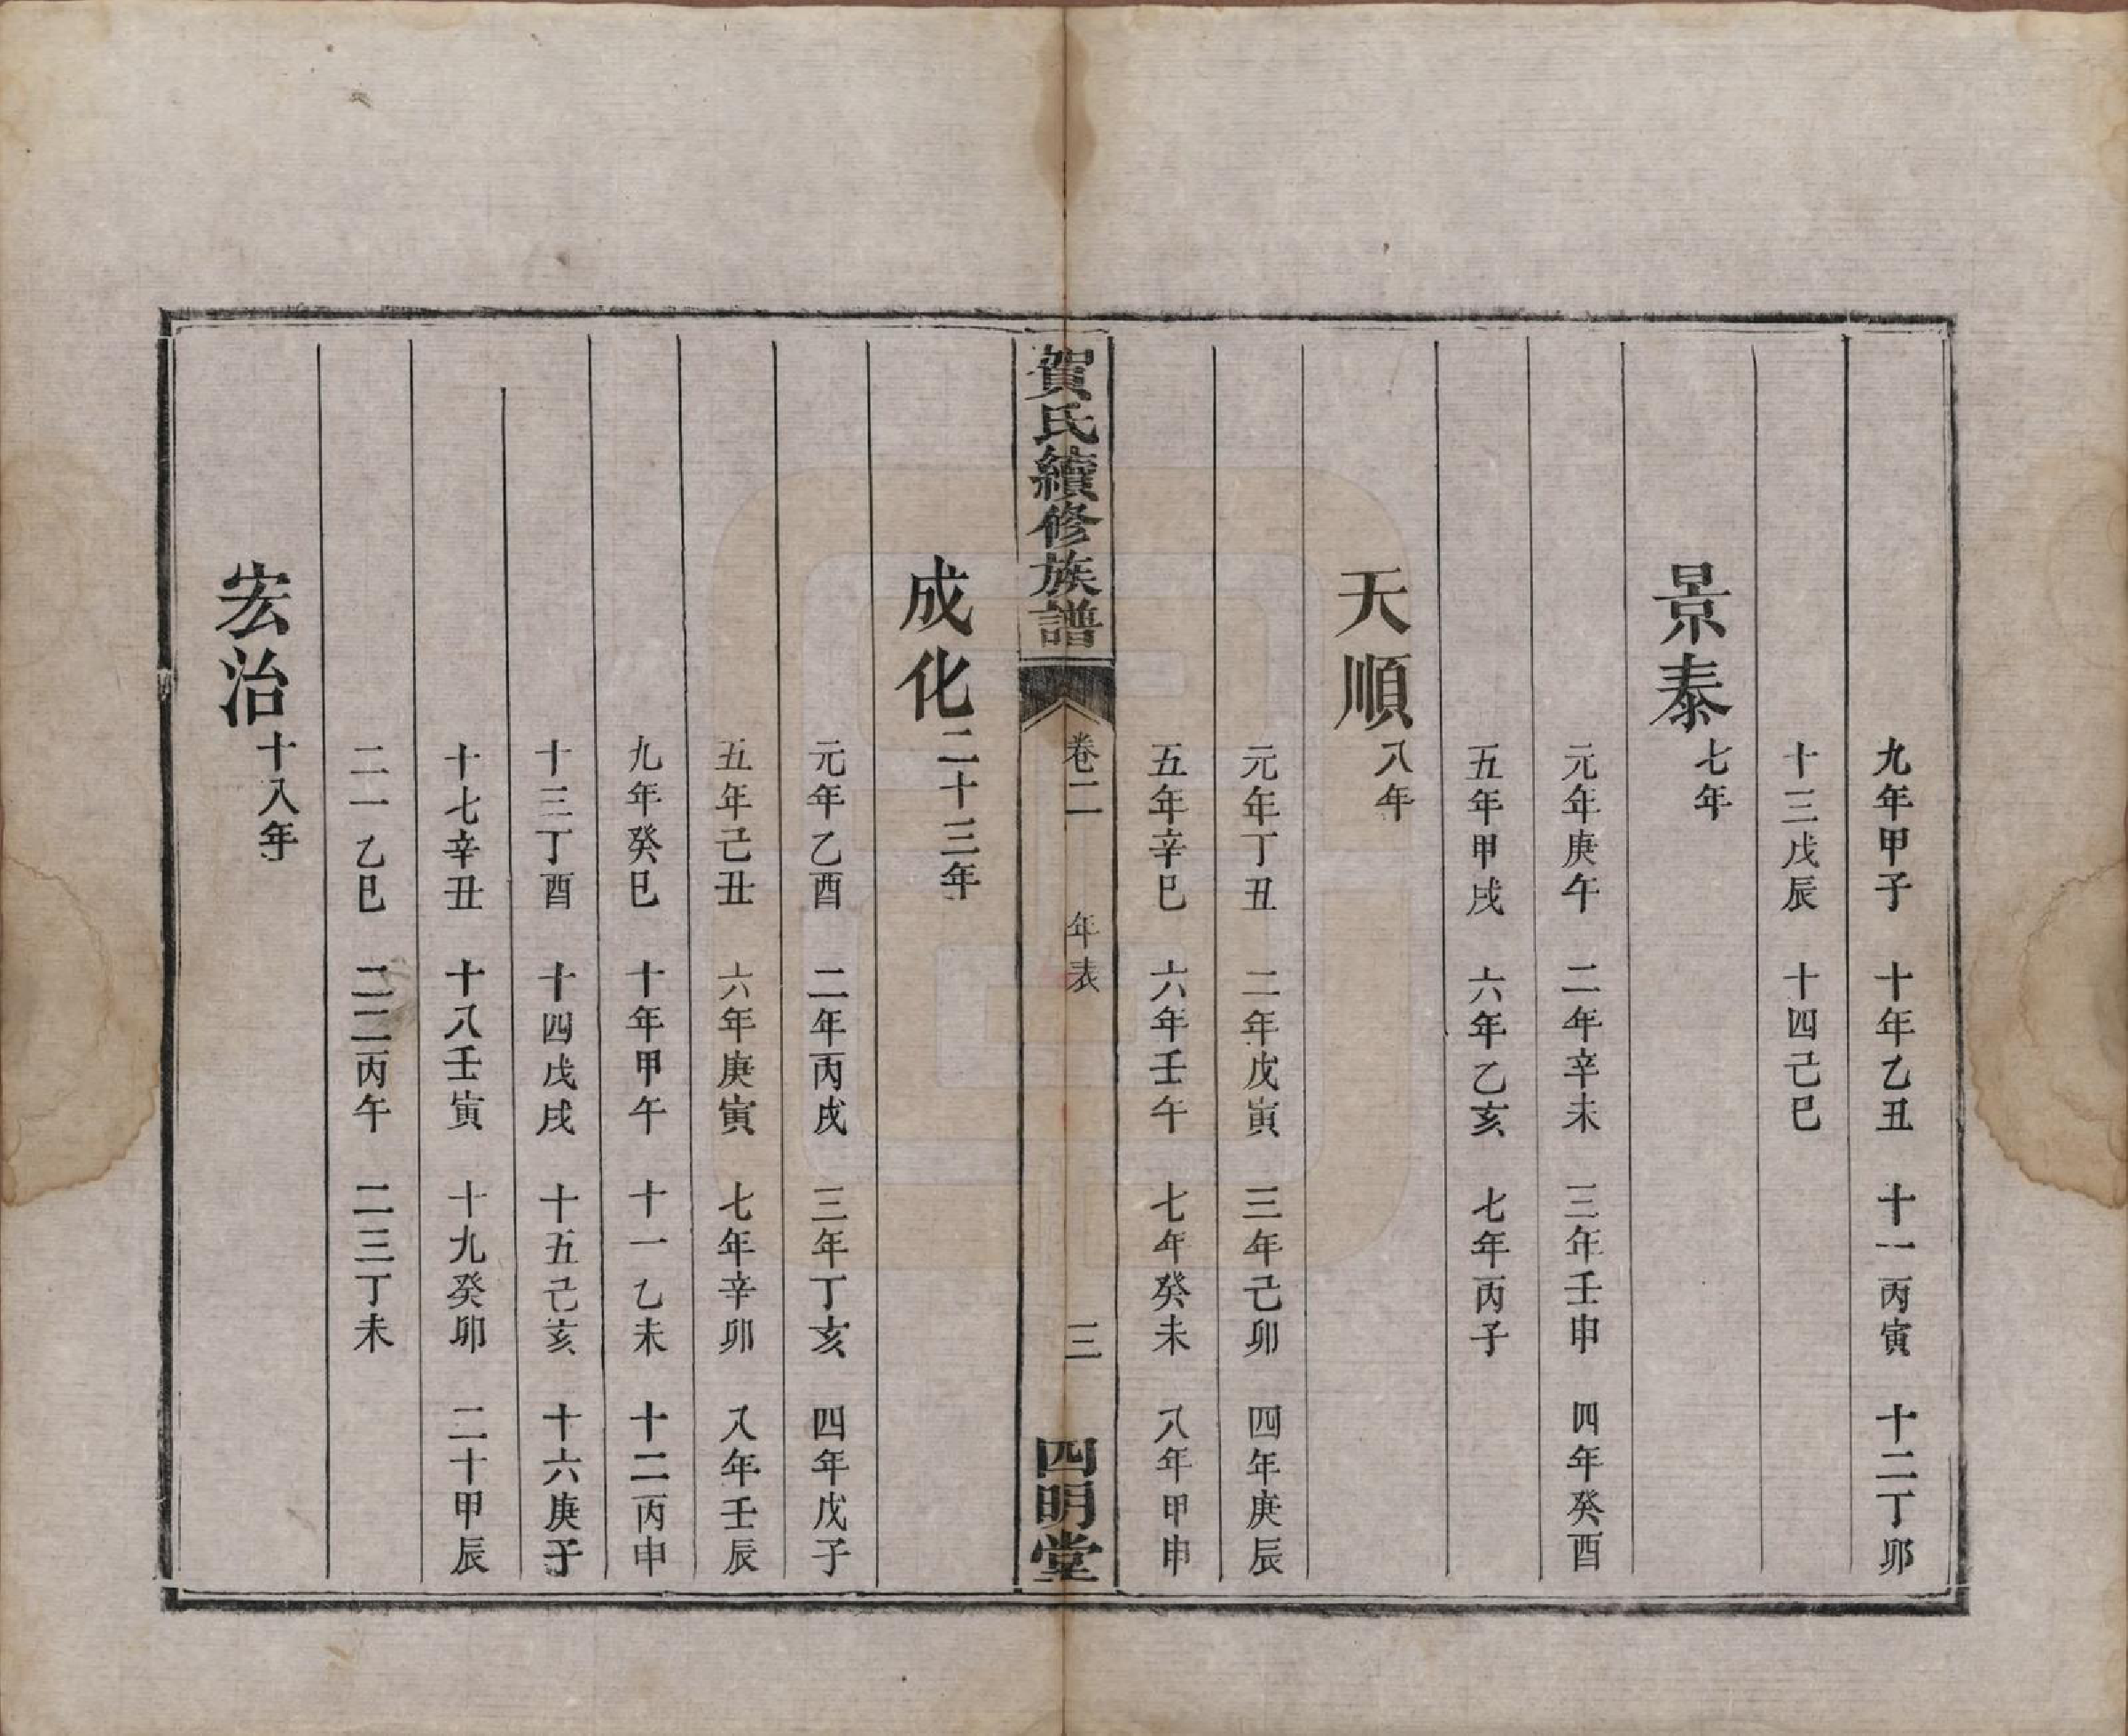 九年甲子　十年乙丑　十一丙寅　十二丁卯
十三戊辰　十四己巳
景泰七年
元年庚午　二年辛未　三年壬申　四年癸酉
五年甲戌　六年乙亥　七年丙子
天順八年
元年丁丑　二年戊寅　三年己卯　四年庚辰
五年辛巳　六年壬午　七年癸未　八年甲申
賀氏續修族譜　卷二　年表　三　四明堂
成化二十三年
元年乙酉　二年丙戌　三年丁亥　四年戊子
五年己丑　六年庚寅　七年辛卯　八年壬辰
九年癸巳　十年甲午　十一乙未　十二丙申
十三丁酉　十四戊戌　十五己亥　十六庚子
十七辛丑　十八壬寅　十九癸卯　二十甲辰
二一乙巳　二二丙午　二三丁未
宏治十八年